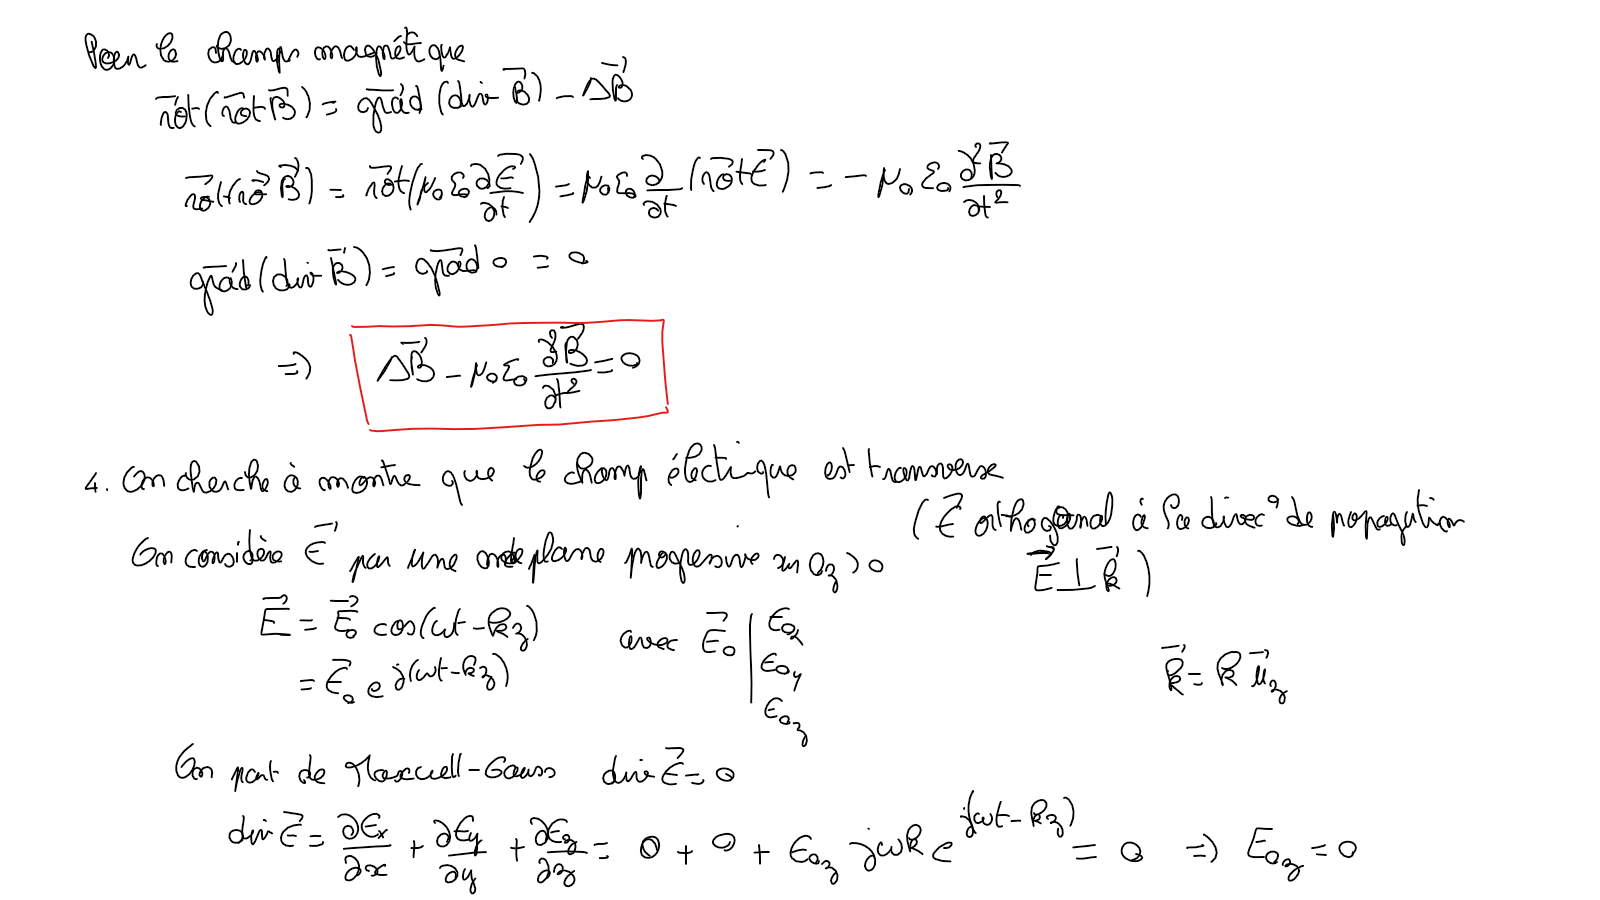 Pour le champs magnétique
r⃗ot(r⃗ot B⃗) = gr⃗ad (div B⃗) - ΔB⃗
r⃗ot(r⃗ot B⃗) = r⃗ot(μ₀ε₀ ∂E⃗/∂t) = μ₀ε₀ ∂/∂t (r⃗ot E⃗) = - μ₀ε₀ ∂²B⃗/∂t²
gr⃗ad(div B⃗) = gr⃗ad 0 = 0
=> ΔB⃗ - μ₀ε₀ ∂²B⃗/∂t² = 0
4. On cherche à montre que le champ électrique est transverse
(E⃗ orthogonal à la direc° de propagation
On considère E⃗ par une onde plane progressive sur Oz > 0
E⃗ ⊥ k⃗)
E⃗ = E⃗₀ cos(ωt - kz) avec E⃗₀ | E₀x E₀y E₀z
= E⃗₀ e^j(ωt - kz)
k⃗ = k u⃗z
On part de Maxwell-Gauss div E⃗ = 0
div E⃗ = ∂Ex/∂x + ∂Ey/∂y + ∂Ez/∂z = 0 + 0 + E₀z jωk e^j(ωt - kz) = 0 => E₀z = 0